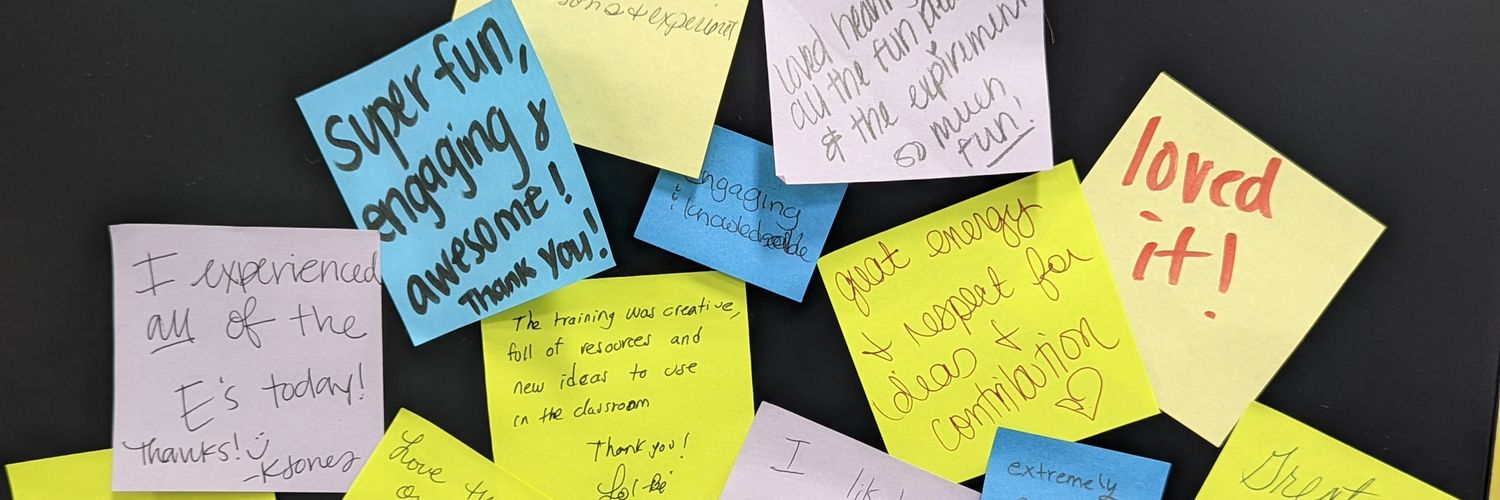 Super fun,
engaging &
awesome!
Thank You!
& experient
loved
all the fun
& the expirement
so much
fun!
engaging
& knowledgeable
loved
it!
great energy
& respect for
ideas &
contribution
I experienced
all of the
E's today!
Thanks!
-KJones
The training was creative,
full of resources and
new ideas to use
in the classroom
Thank you!
Love
I
extremely
Great